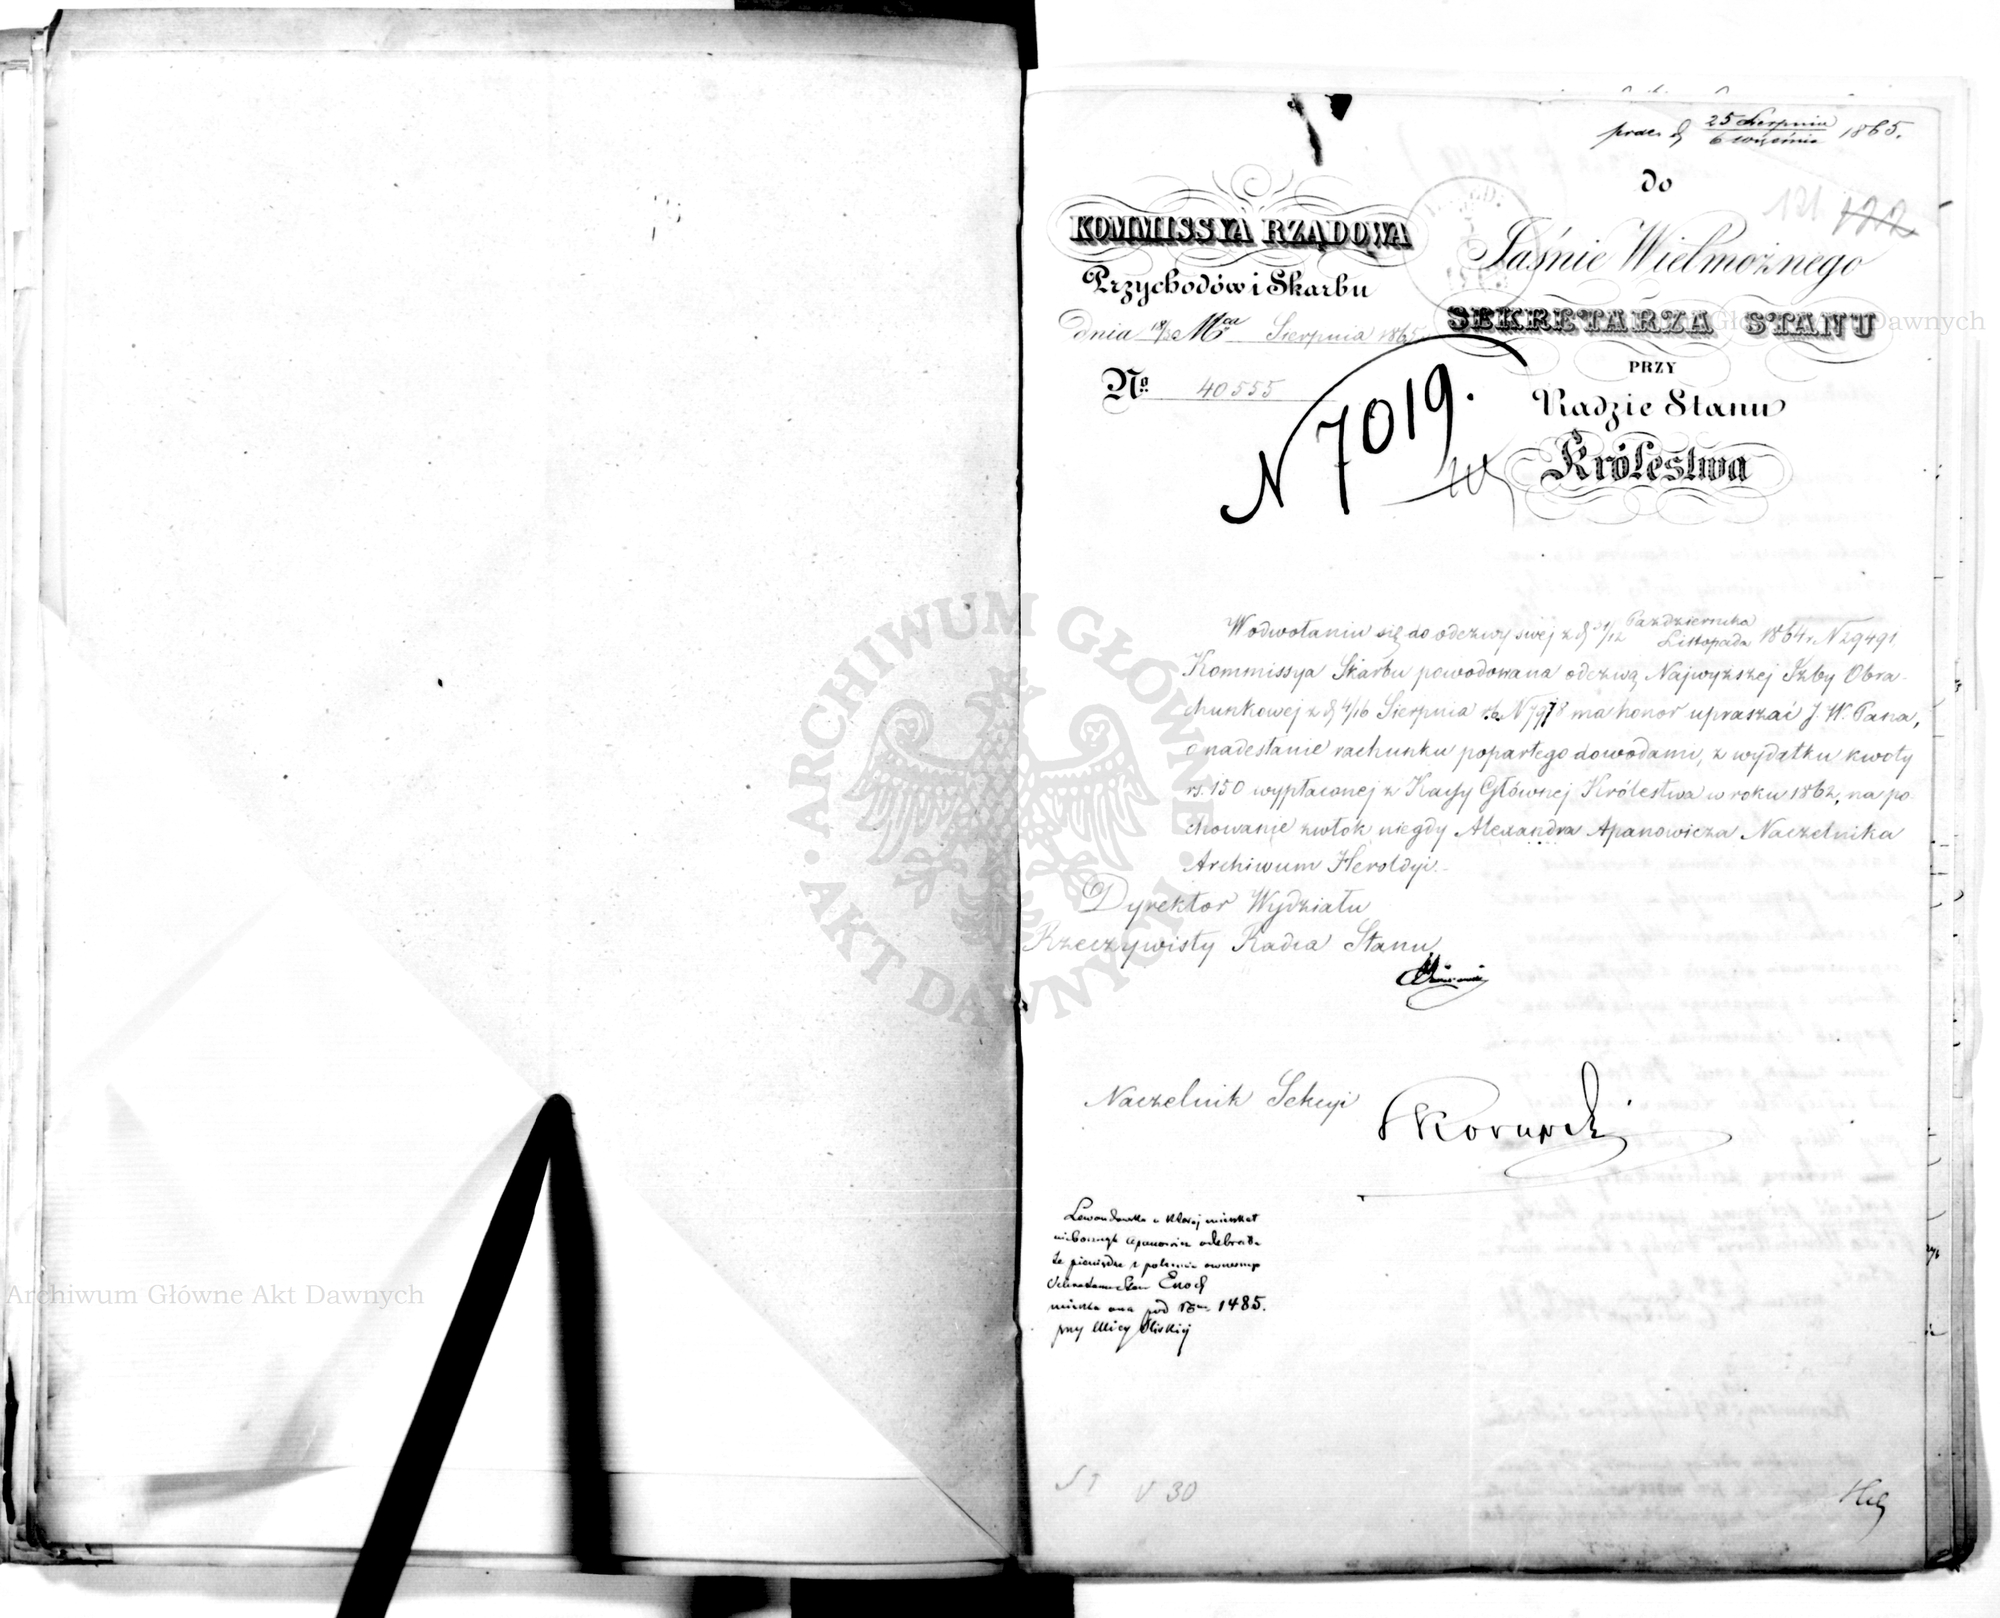 praes. d. 25 Sierpnia / 6 Września 1865.
do
121 122
KOMMISSYA RZĄDOWA
Przychodów i Skarbu
dnia 18/30 Mca Sierpnia 1865
No 40555
Jaśnie Wielmożnego
SEKRETARZA STANU
PRZY
Radzie Stanu
Królestwa
N 7019.
W odwołaniu się do odezwy swej z d. 31/12 Października / Listopada 1864 r. N 29491
Kommissya Skarbu powodowana odezwą Najwyższej Izby Obra-
chunkowej z d. 4/16 Sierpnia r.b. N 7978 ma honor upraszać J. W. Pana,
o nadesłanie rachunku popartego dowodami, z wydatku kwoty
rs. 150 wypłaconej z Kassy Głównej Królestwa w roku 1862, na po-
chowanie zwłok niegdy Alexandra Apanowicza Naczelnika
Archiwum Heroldyi.
Dyrektor Wydziału
Rzeczywisty Radca Stanu
Naczelnik Sekcyi
Skorupski
Lewandowska u której mieszkał
nieboszczyk Apanowicz odebrała
te pieniądze z polecenia ówczesnego
Enoch
mieszka ona pod Nrem 1485.
przy Ulicy Śliskiej
V 30
ARCHIWUM GŁÓWNE AKT DAWNYCH
Archiwum Główne Akt Dawnych